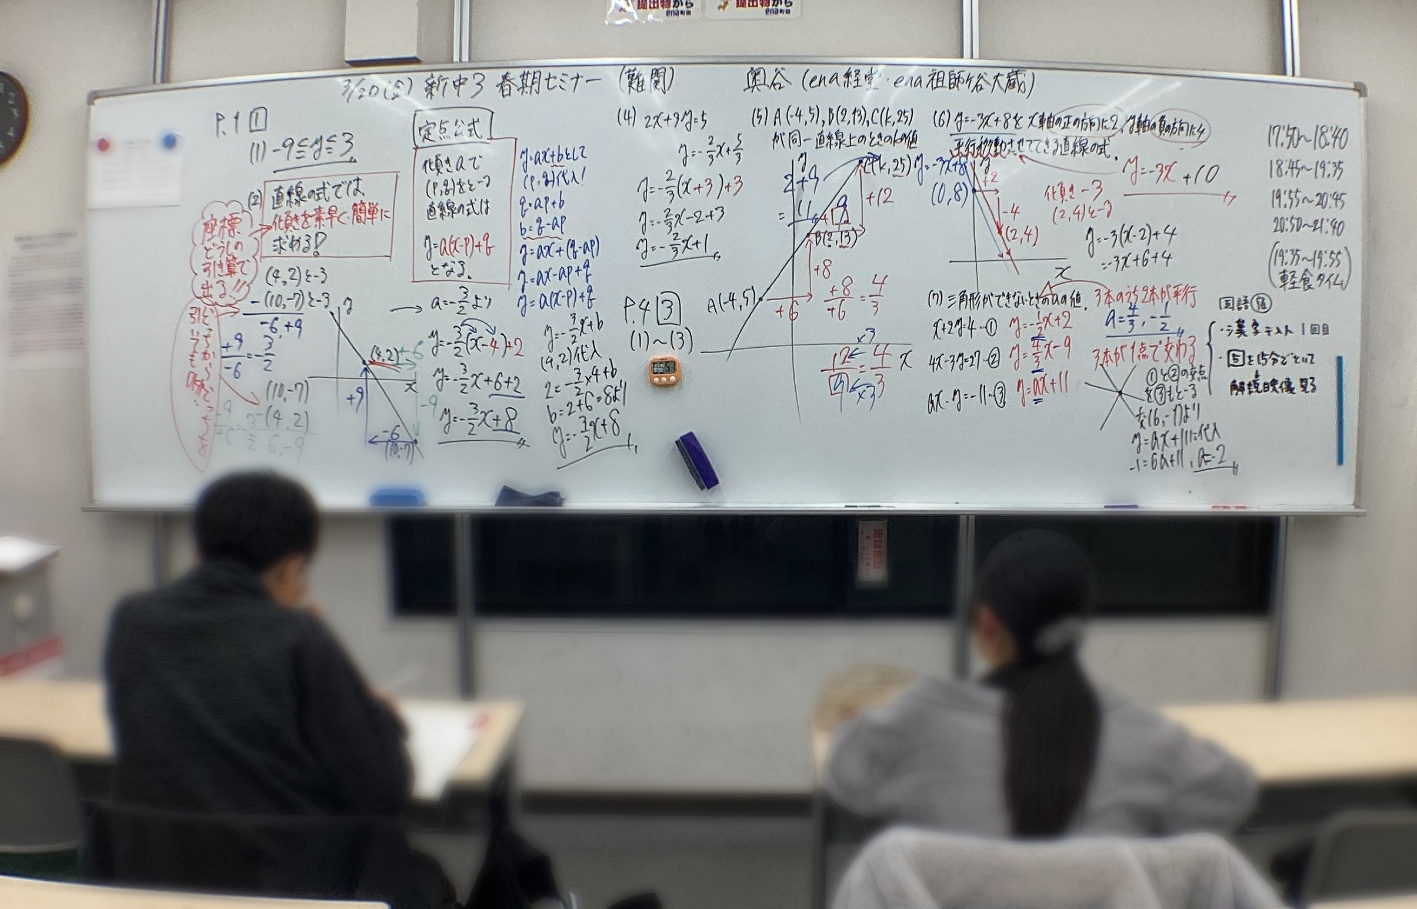 提出物から
ena
提出物から
ena
3/20(金) 新中3 春期セミナー (難関) 奥谷 (ena経堂・ena祖師ヶ谷大蔵)
P.1 1
(1) -9≦y≦3
(2) 直線の式では
傾きを素早く簡単に
求める!
座標
どうしの
引き算で
出る!!
(4,2)と→
-(10,-7)と→
-6,+9
+9/-6=-3/2
(10,-7)
(4,2)
6,-9
y
(4,2)
x
+9
-6
(10,-7)
-9
定点公式
傾きaで
(p,q)をとる
直線の式は
y=a(x-p)+q
となる.
y=ax+bとして
(p,q)代入!
q=ap+b
b=q-ap
y=ax+(q-ap)
y=ax-ap+q
y=a(x-p)+q
→ a=-3/2より
y=-3/2(x-4)+2
y=-3/2x+6+2
y=-3/2x+8
y=-3/2x+b
(4,2)代入
2=-3/2×4+b
b=2+6=8より
y=-3/2x+8
(4) 2x+3y=5
y=-2/3x+5/3
y=-2/3(x+3)+3
y=-2/3x-2+3
y=-2/3x+1
P.4 3
(1)~(3)
(5) A(-4,5), B(2,13), C(k,25)
が同一直線上のときのkの値
y
C(k,25)
2+9
=11
9
+12
B(2,13)
+8
A(-4,5)
+6
+8/+6=4/3
x
×3
12/9=4/3
×3
(6) y=-3x+8をx軸の正の方向に2, y軸の負の方向に4
平行移動させてできる直線の式.
y=-3x+8
(0,8)
y
+2
-4
(2,4)
x
傾き-3
(2,4)を→
y=-3x+10
y=-3(x-2)+4
=-3x+6+4
(7) 三角形ができないときのaの値.
x+2y=4…①
4x-3y=27…②
ax-y=-11…③
y=-1/2x+2
y=4/3x-9
y=ax+11
3本のうち2本が平行
a=4/3,-1/2
3本が1点で交わる
①と②の交点
を③もとる
(6,-1)より
y=ax+11に代入
-1=6a+11, a=-2
17:50~18:40
18:45~19:35
19:55~20:45
20:50~21:40
(19:35~19:55)
軽食タイム
国語
漢字テスト 1回目
を15分でといて
解説映像見る